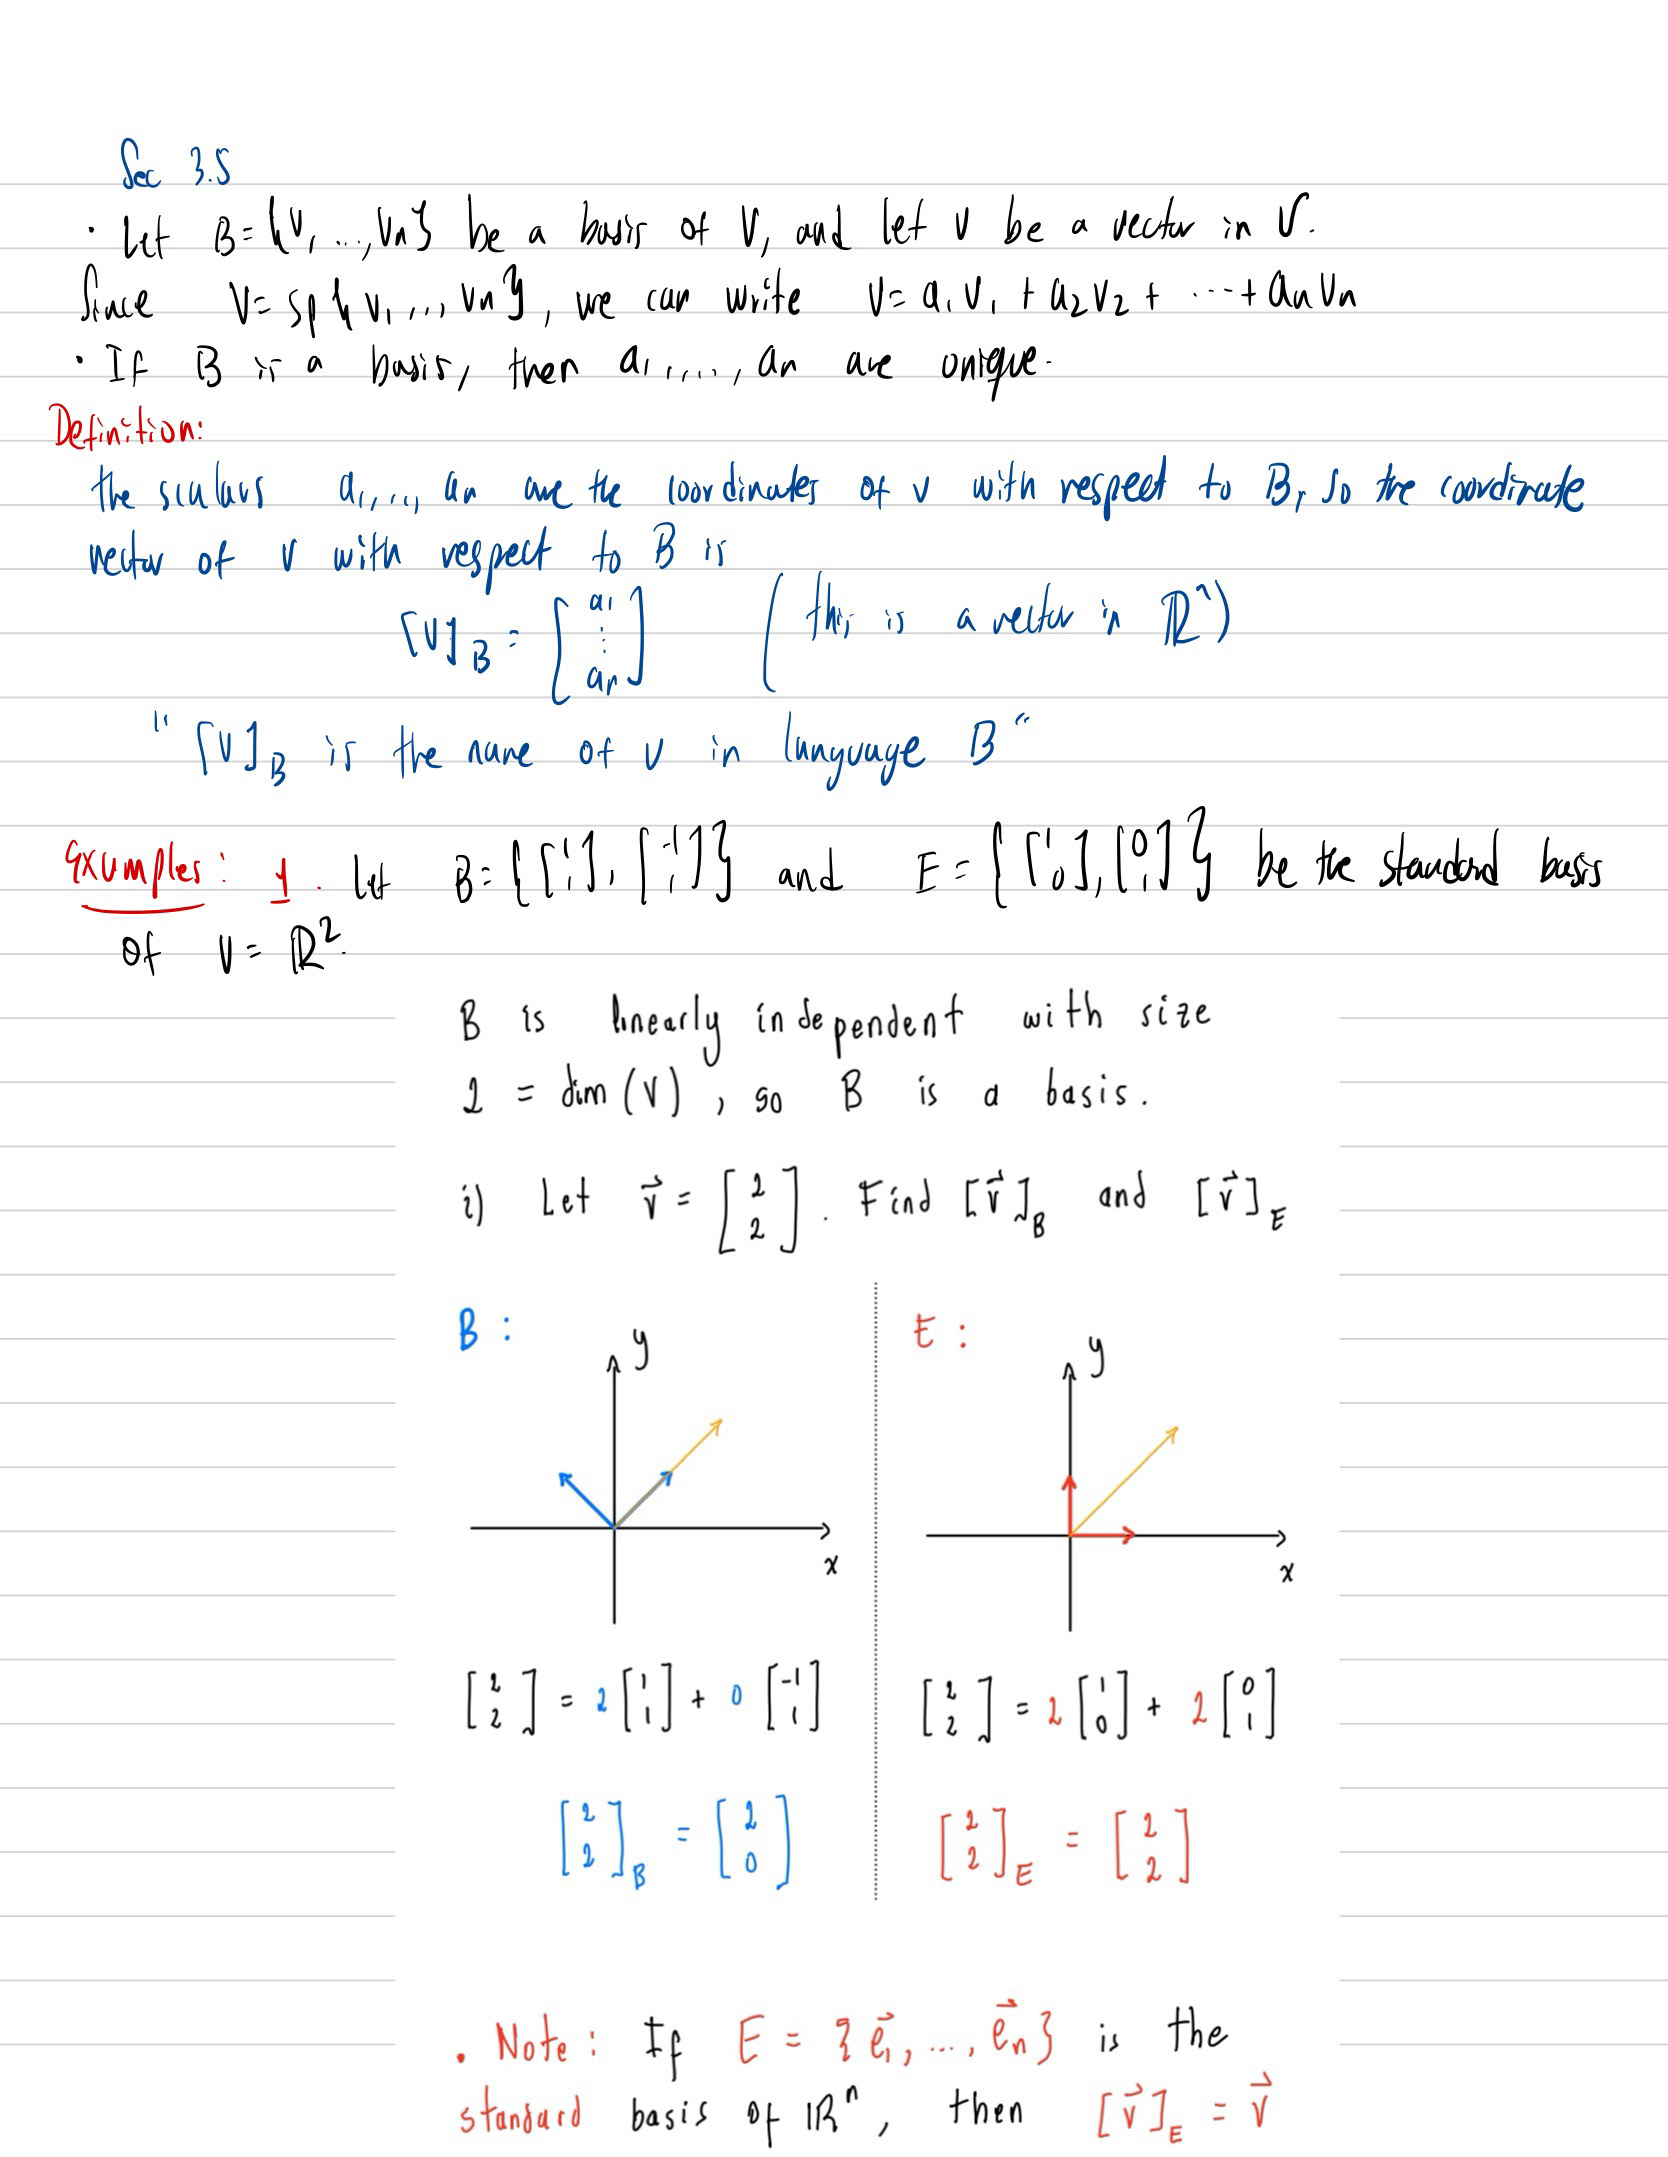 Sec 3.5
· Let B={v₁,...,vₙ} be a basis of V, and let v be a vector in V.
Since V=sp{v₁,..., vₙ}, we can write v=a₁v₁ + a₂v₂ + ···+ aₙvₙ
· If B is a basis, then a₁,...., aₙ are unique.
Definition:
the scalars a₁,..., aₙ are the coordinates of v with respect to B, so the coordinate
vector of v with respect to B is
[v]_B = [a₁ ⋮ aₙ] (this is a vector in ℝⁿ)
"[v]_B is the name of v in language B"
Examples: 1. Let B={[1 1], [-1 1]} and E={[1 0],[0 1]} be the standard basis
of V=ℝ².
B is linearly independent with size
2 = dim(V), so B is a basis.
i) Let v⃗ = [2 2]. Find [v⃗]_B and [v⃗]_E
B:
y
x
[2 2] = 2[1 1] + 0[-1 1]
[2 2]_B = [2 0]
E:
y
x
[2 2] = 2[1 0] + 2[0 1]
[2 2]_E = [2 2]
. Note: If E = {e⃗₁, ..., e⃗ₙ} is the
standard basis of ℝⁿ, then [v⃗]_E = v⃗